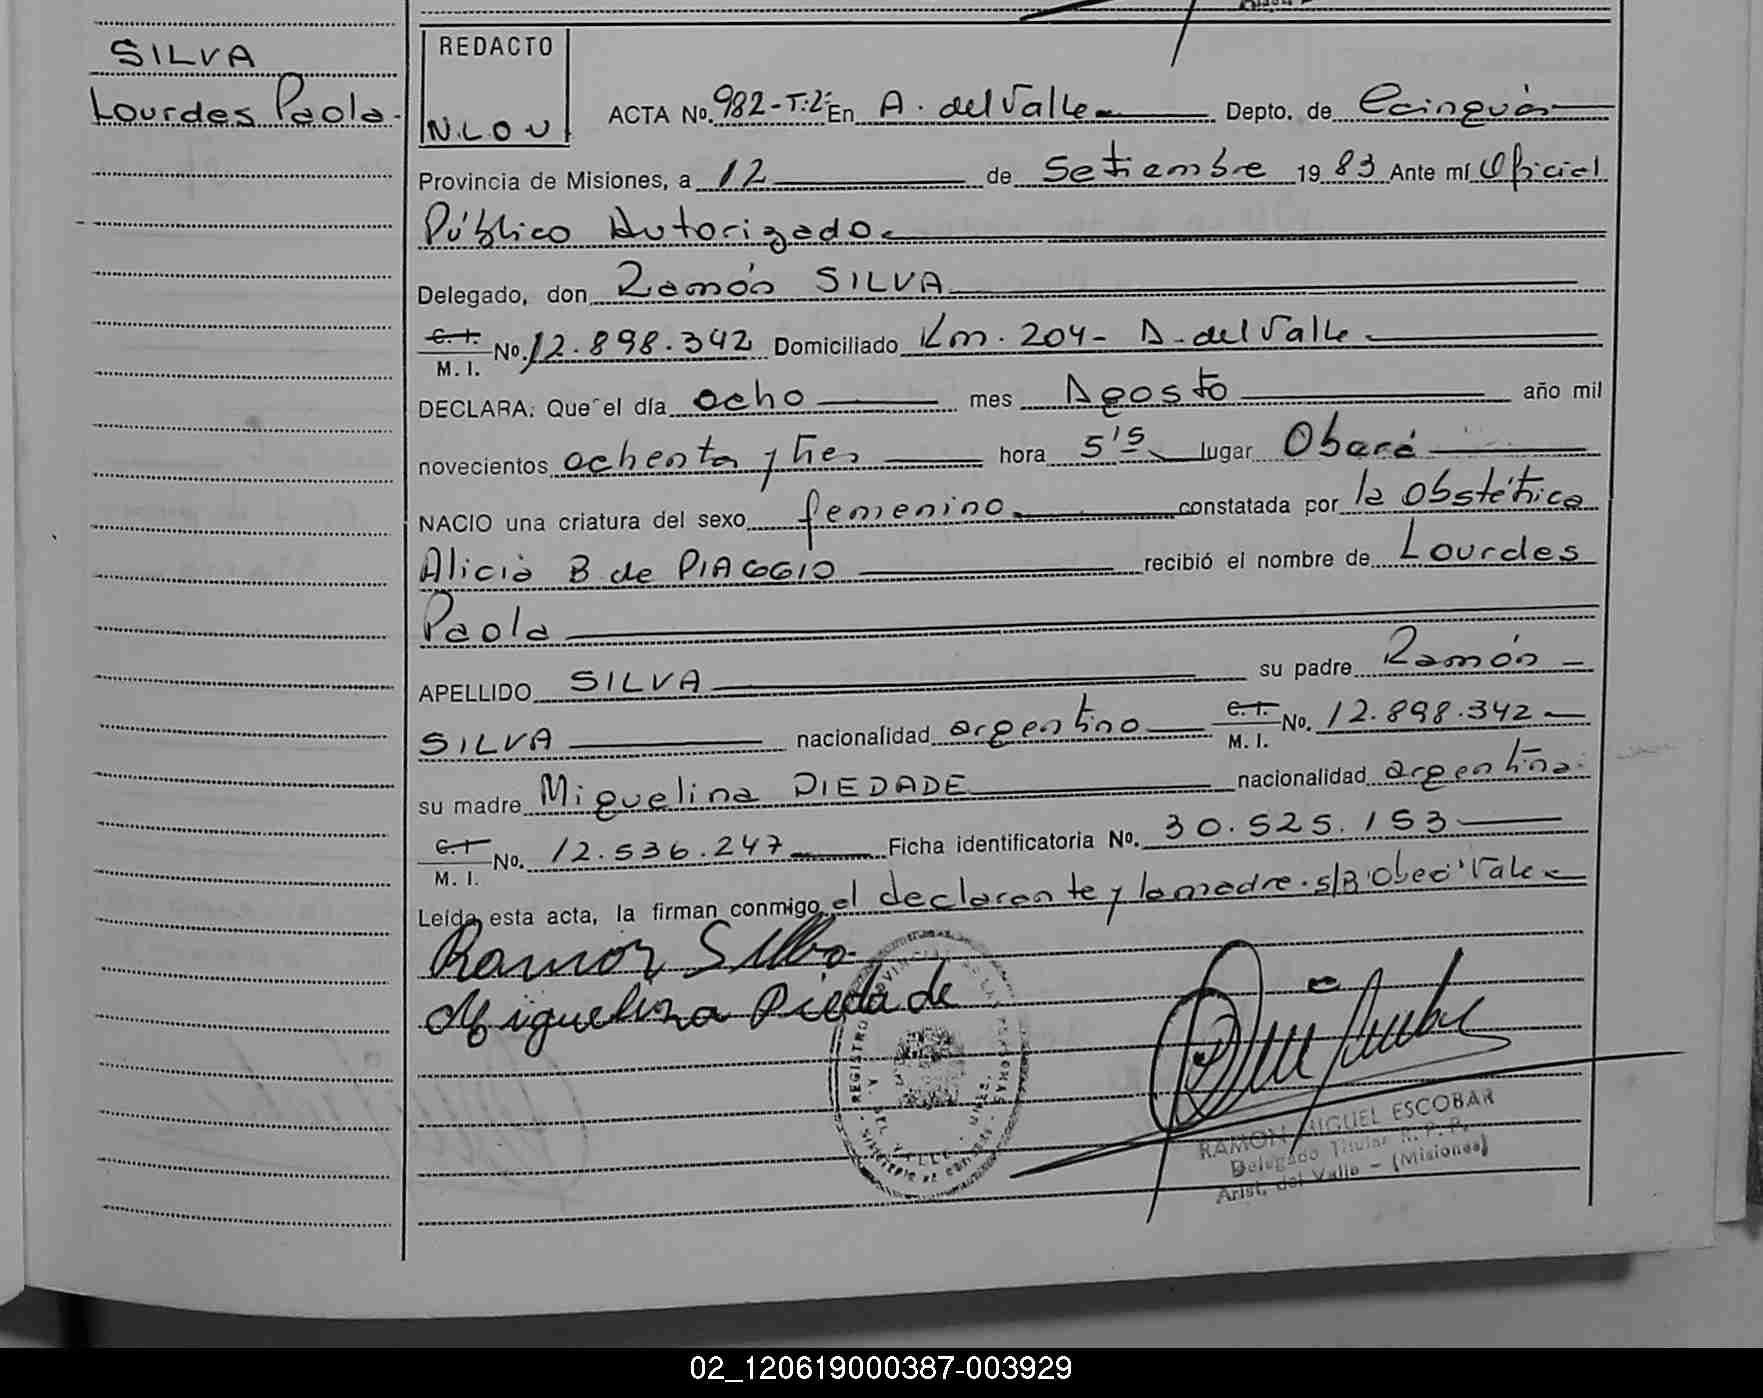 SILVA
Lourdes Paola.
REDACTO
N.L.O.U
ACTA No. 982-T:2: En A. del Valle Depto. de Cainguás
Provincia de Misiones, a 12 de Setiembre 1983 Ante mí Oficial
Público Autorizado.
Delegado, don Ramón SILVA
C. I.
M. I. No. 12.898.342 Domiciliado Km. 204- A. del Valle
DECLARA: Que el día ocho mes Agosto año mil
novecientos ochenta y tres hora 5'5 lugar Oberá
NACIO una criatura del sexo femenino constatada por la obstétrica
Alicia B de PIAGGIO recibió el nombre de Lourdes
Paola
APELLIDO SILVA su padre Ramón
SILVA nacionalidad argentino C. I. M. I. No. 12.898.342
su madre Miguelina PIEDADE nacionalidad argentina
C. I.
M. I. No. 12.536.247 Ficha identificatoria No. 30.525.153
Leída esta acta, la firman conmigo el declarante y la madre. s/R Vale
Ramon Silva
Miguelina Piedade
REGISTRO PROVINCIAL DE LAS PERSONAS
A. DEL VALLE
RAMON MIGUEL ESCOBAR
Delegado Titular R. P. P.
Arist. del Valle - (Misiones)
02_120619000387-003929